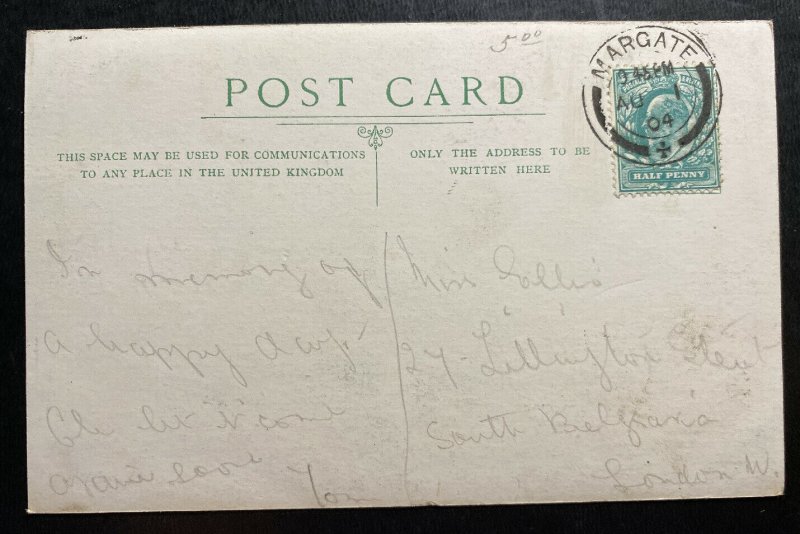 5 00
POST CARD
THIS SPACE MAY BE USED FOR COMMUNICATIONS
TO ANY PLACE IN THE UNITED KINGDOM
ONLY THE ADDRESS TO BE
WRITTEN HERE
MARGATE
AU 1
04
HALF PENNY
In memory of
a happy day.
let it come
again soon
Tom
Miss
27 Lillington Street
South Belgravia
London W.